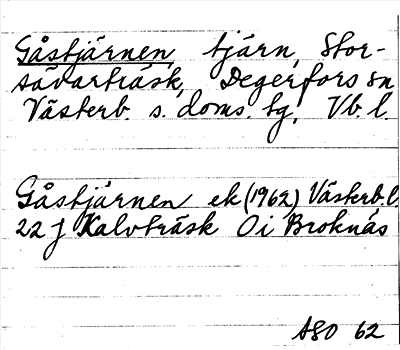 Gåstjärnen, tjärn, Stor-
sävarträsk, Degerfors sn
Västerb. s. doms. tg, Vb. l.
Gåstjärnen ek (1962) Västerb. l.
22 J Kalvträsk 0 i Broknäs
ASO 62